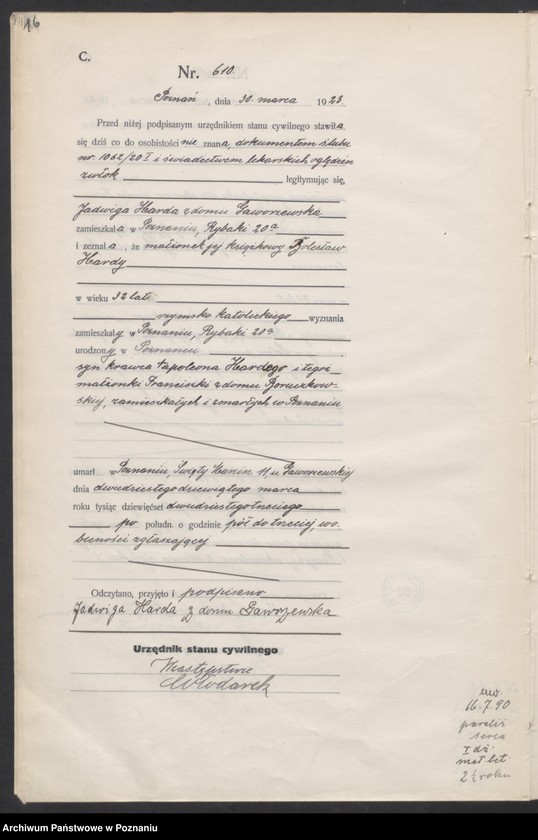 16
C.
Nr. 610.
Poznań, dnia 30. marca 1923.
Przed niżej podpisanym urzędnikiem stanu cywilnego stawiła
się dziś co do osobistości nie znana, dokumentem ślubu
nr. 1062/20 I i świadectwem lekarskich oględzin
zwłok legitymując się,
Jadwiga Harda z domu Gaworzewska
zamieszkała w Poznaniu, Rybaki 20a
i zeznała, że małżonek jej księgowy Bolesław
Hardy
w wieku 32 lat
rzymsko katolickiego wyznania
zamieszkały w Poznaniu, Rybaki 20a
urodzony w Poznaniu
syn krawca Napoleona Hardego i tegoż
małżonki Franciszki z domu
zamieszkałych i zmarłych w Poznaniu
umarł w Poznaniu, Święty Marcin 11, u Gaworzewskiej
dnia dwudziestego dziewiątego marca
roku tysiąc dziewięćset dwudziestego trzeciego
po połudn. o godzinie pół do trzeciej, w o-
becności zgłaszającej
Odczytano, przyjęto i podpisano
Jadwiga Harda z domu Gaworzewska
Urzędnik stanu cywilnego
W zastępstwie
Włodarek
16.7.90
paraliż
serca
I dz.
mał. let.
2½ roku
Archiwum Państwowe w Poznaniu